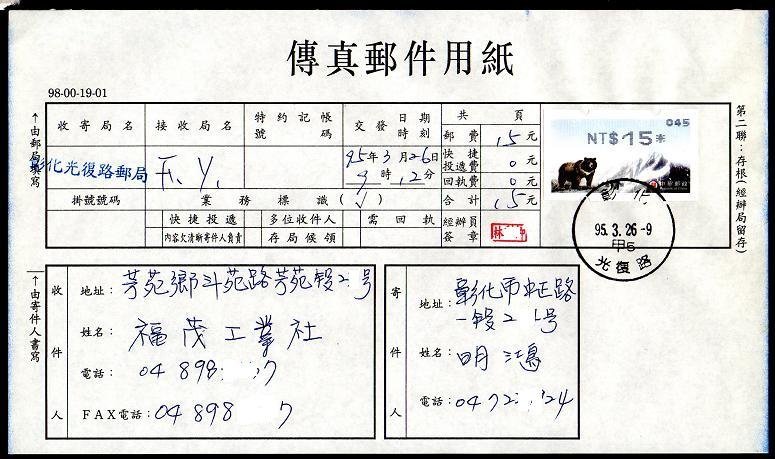 傳真郵件用紙
98-00-19-01
↑由郵局填寫
收寄局名 接收局名 特約記帳號碼 交發日期時刻 共 頁
郵費 15元
彰化光復路郵局 F.Y. 95年3月26日 9時12分
快捷投遞費 0元
回執費 0元
掛號號碼 業務標識(√) 合計 15元
快捷投遞 多位收件人 需回執 經辦員簽章 林
內容欠清晰寄件人負責 存局候領
045
NT$15*
中華郵政
彰化
95.3.26-9
甲5
光復路
第二聯:存根(經辦局留存)
↑由寄件人書寫
收件人
地址:芳苑鄉斗苑路芳苑段2 號
姓名:福茂工業社
電話:04 898 7
FAX電話:04 898 7
寄件人
地址:彰化市中正路
一段2 號
姓名:明
電話:04 72 24